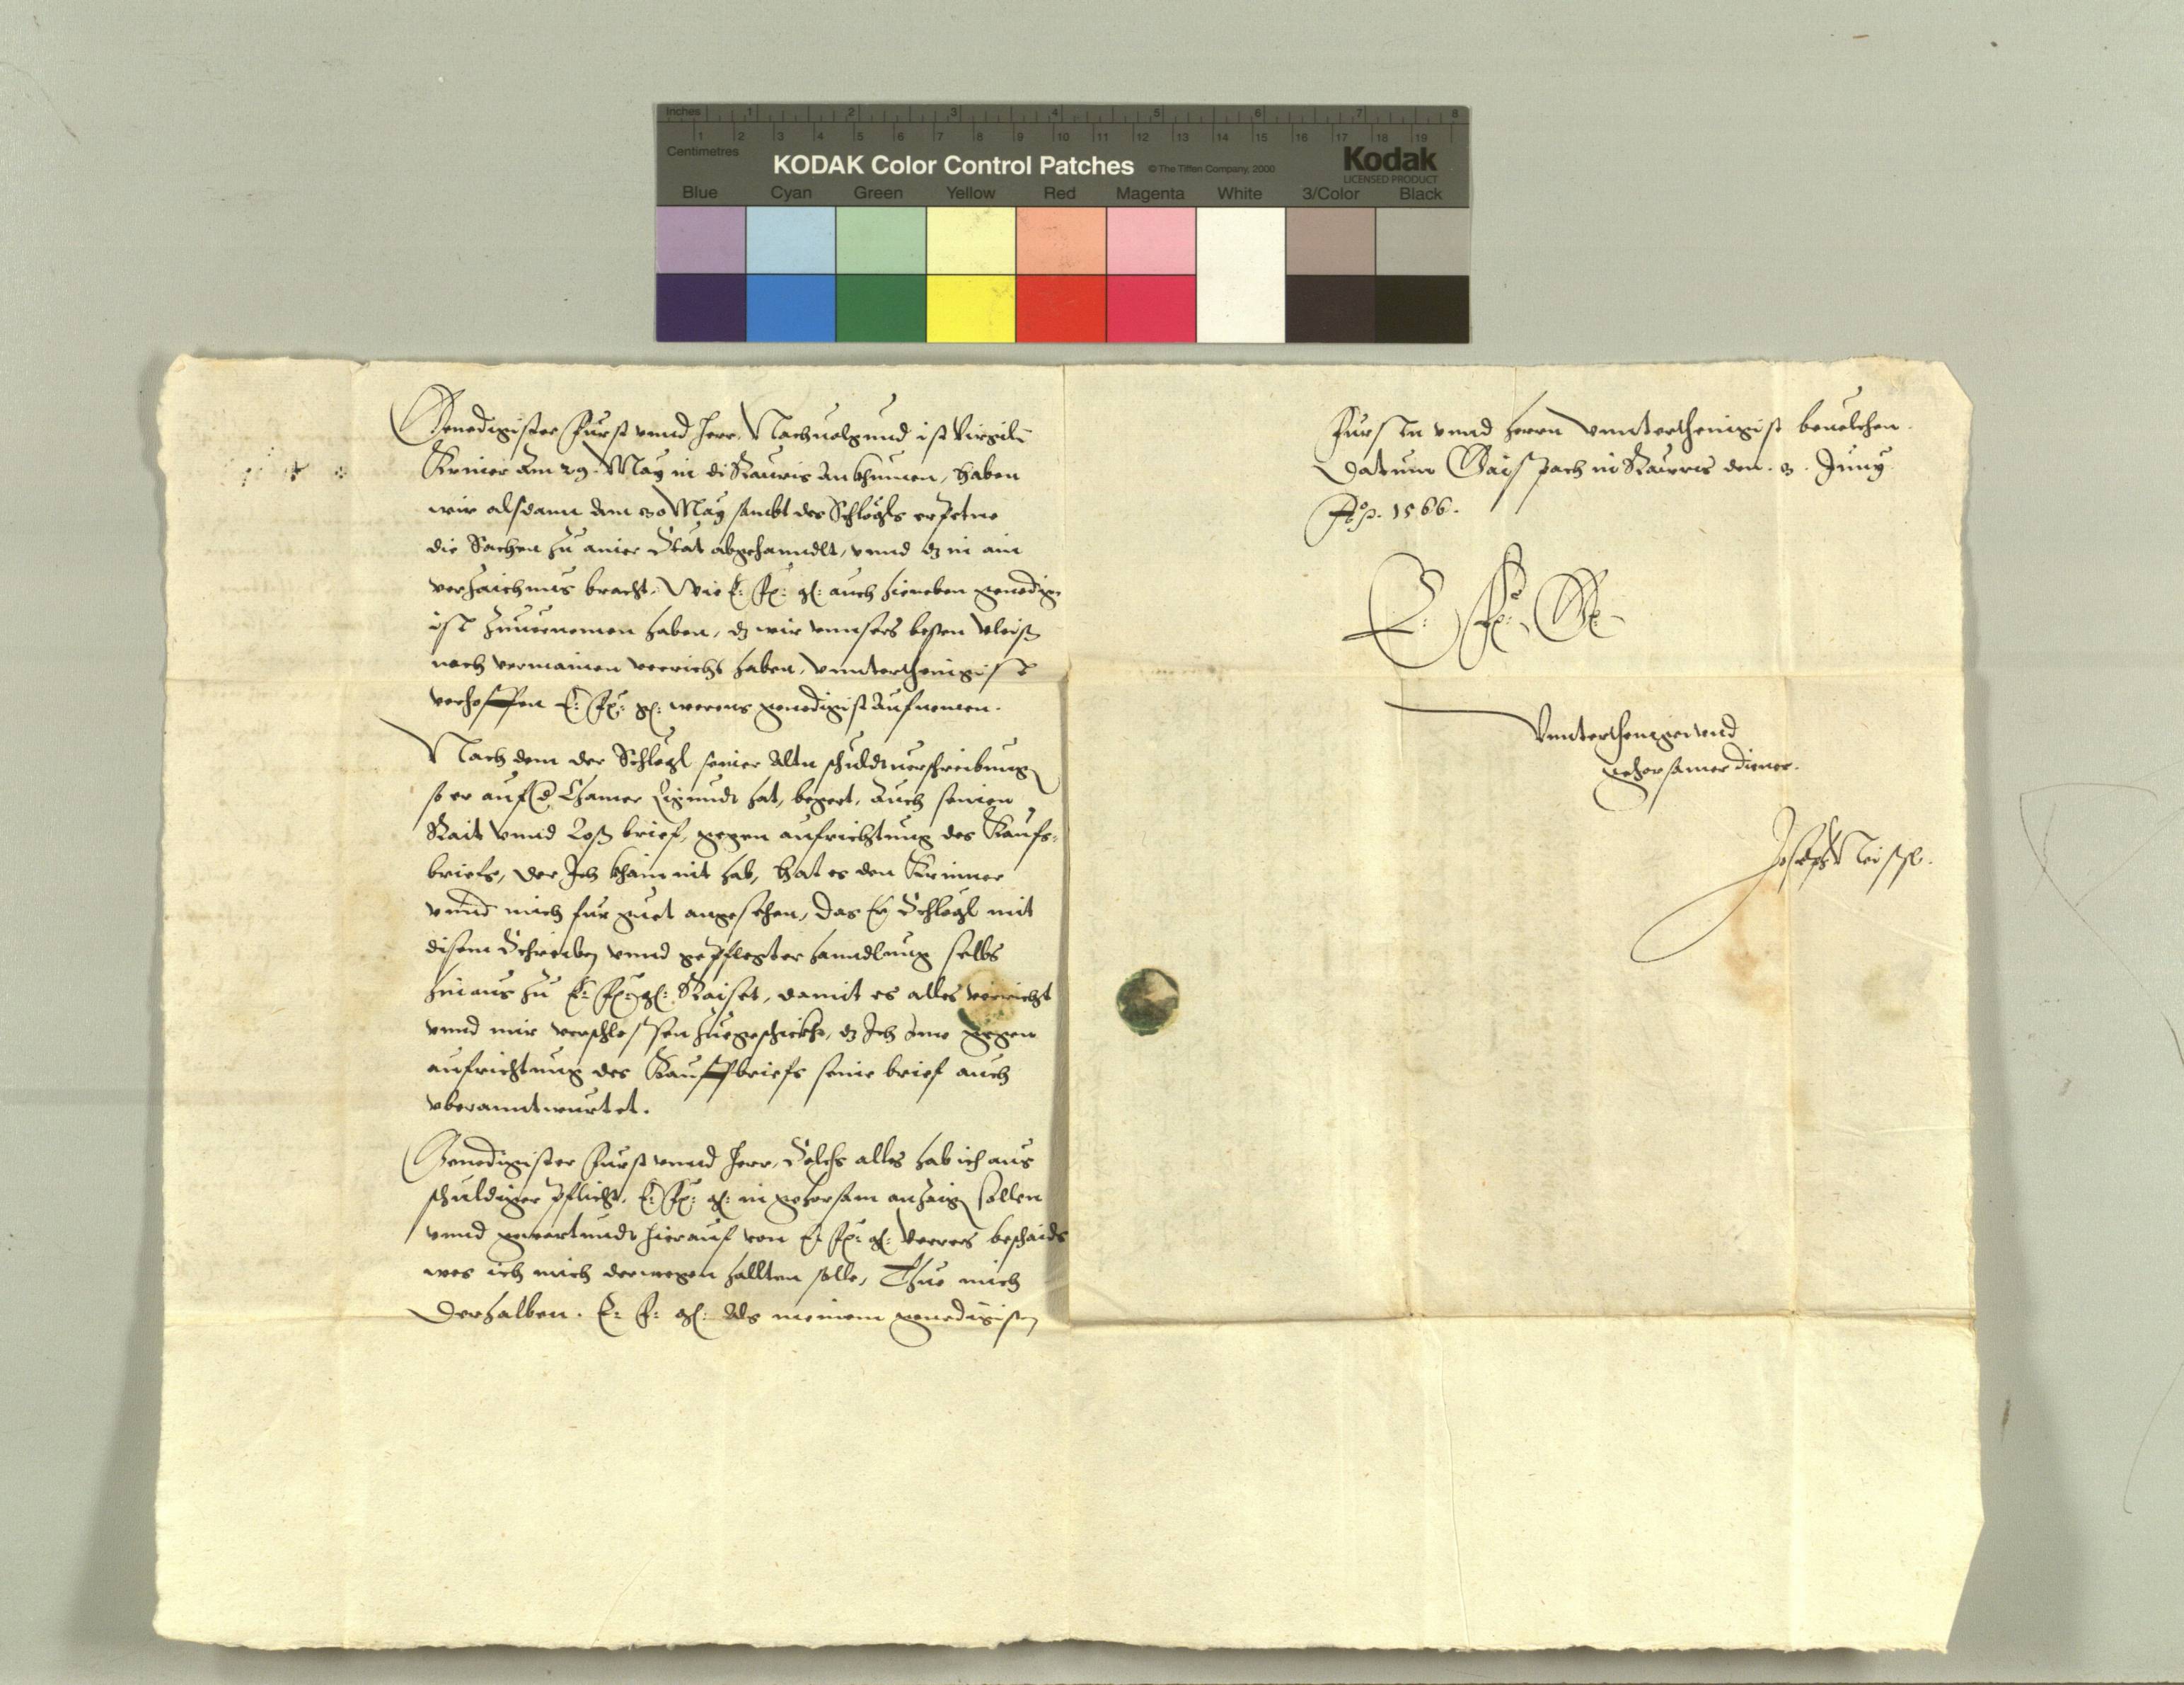 Inches 1 2 3 4 5 6 7 8
1 2 3 4 5 6 7 8 9 10 11 12 13 14 15 16 17 18 19
Centimetres
KODAK Color Control Patches © The Tiffen Company, 2000 Kodak
LICENSED PRODUCT
Blue Cyan Green Yellow Red Magenta White 3/Color Black
Genedigister Fürst vnnd Herr, Nachuolgund ist Virgili
Krimer Am 29. May in di Rauris ankhumen, haben
wir alsdann am 30 May sambt des Schlögls
die Sachen zu ainer Stat abgehanndlt, vnnd dz in ain
verzaichnus bracht, Wie E: Fr: gl: auch hieneben genedig
ist zuuernemen haben, dz wir vnnsers besten vleiß
nach vermainen verricht haben, vnnterthenigist
verhoffen E: Fr: gl: werens genedigist aufnemen.
Nach dem der Schlögl seiner Altn schuldtuerschreibung
so er auf d Chamer hat, begert, Auch seinen
Rait vnnd Loß brief, gegen aufrichtung des Kaufs-
briefs, der Ich khain nit hab, hat es den Krimer
vnnd mich für guet angesehen, das Er Schlögl mit
disem Schreiben vnnd gepflegter hanndlung selbs
hinaus zu E: Fr: gl: Raiset, damit es alles verricht
vnnd mir verschlossen zuegeschickht, dz Ich Ime gegen
aufrichtung des Kauffbriefs seine brief auch
vberanntwurtet.
Genedigister Fürst vnnd Herr, Solchs alles hab ich aus
schuldiger pflicht, E: Fr: gl: in gehorsam anzaigen sollen
vnnd gewartundt hierauf von E: Fr: gl: verrers beschaids
wes ich mich derwegen hallten solle, Thue mich
Derhalben. E: F: gl: Als meinem genedigisten
Fürsten vnnd Herrn vnnterthenigist beuelchen.
Datum Gaispach in Rauris den. 3. Juny
Ao. 1566.
E: Fr: Gl:
Vnnterthenigen vnd
gehorsamer diener.